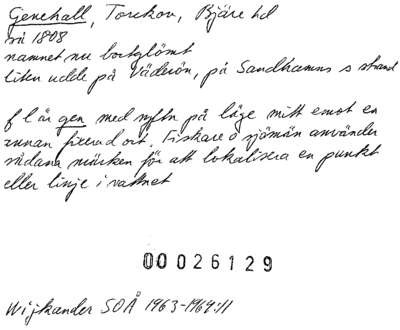 Genehall, Torekov, Bjäre hd
så 1808
namnet nu bortglömt
liten udde på Väderön, på Sandhamns s strand
f l är gen med syftn på läge mitt emot en
annan fixerad ort. Fiskare o sjömän använder
sådana märken för att lokalisera en punkt
eller linje i vattnet
00026129
Wijkander SOÅ 1963-1964:11